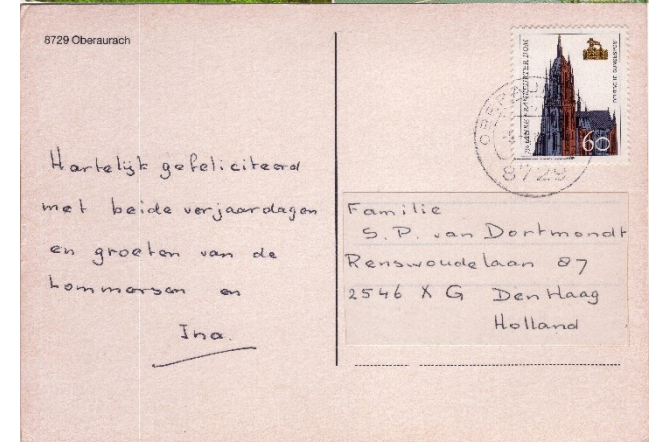 8729 Oberaurach
60
8729
Hartelijk gefeliciteerd
met beide verjaardagen
en groeten van de
Lommersen en
Ina.
Familie
S. P. van Dortmondt
Renswoudelaan 87
2546 X G Den Haag
Holland